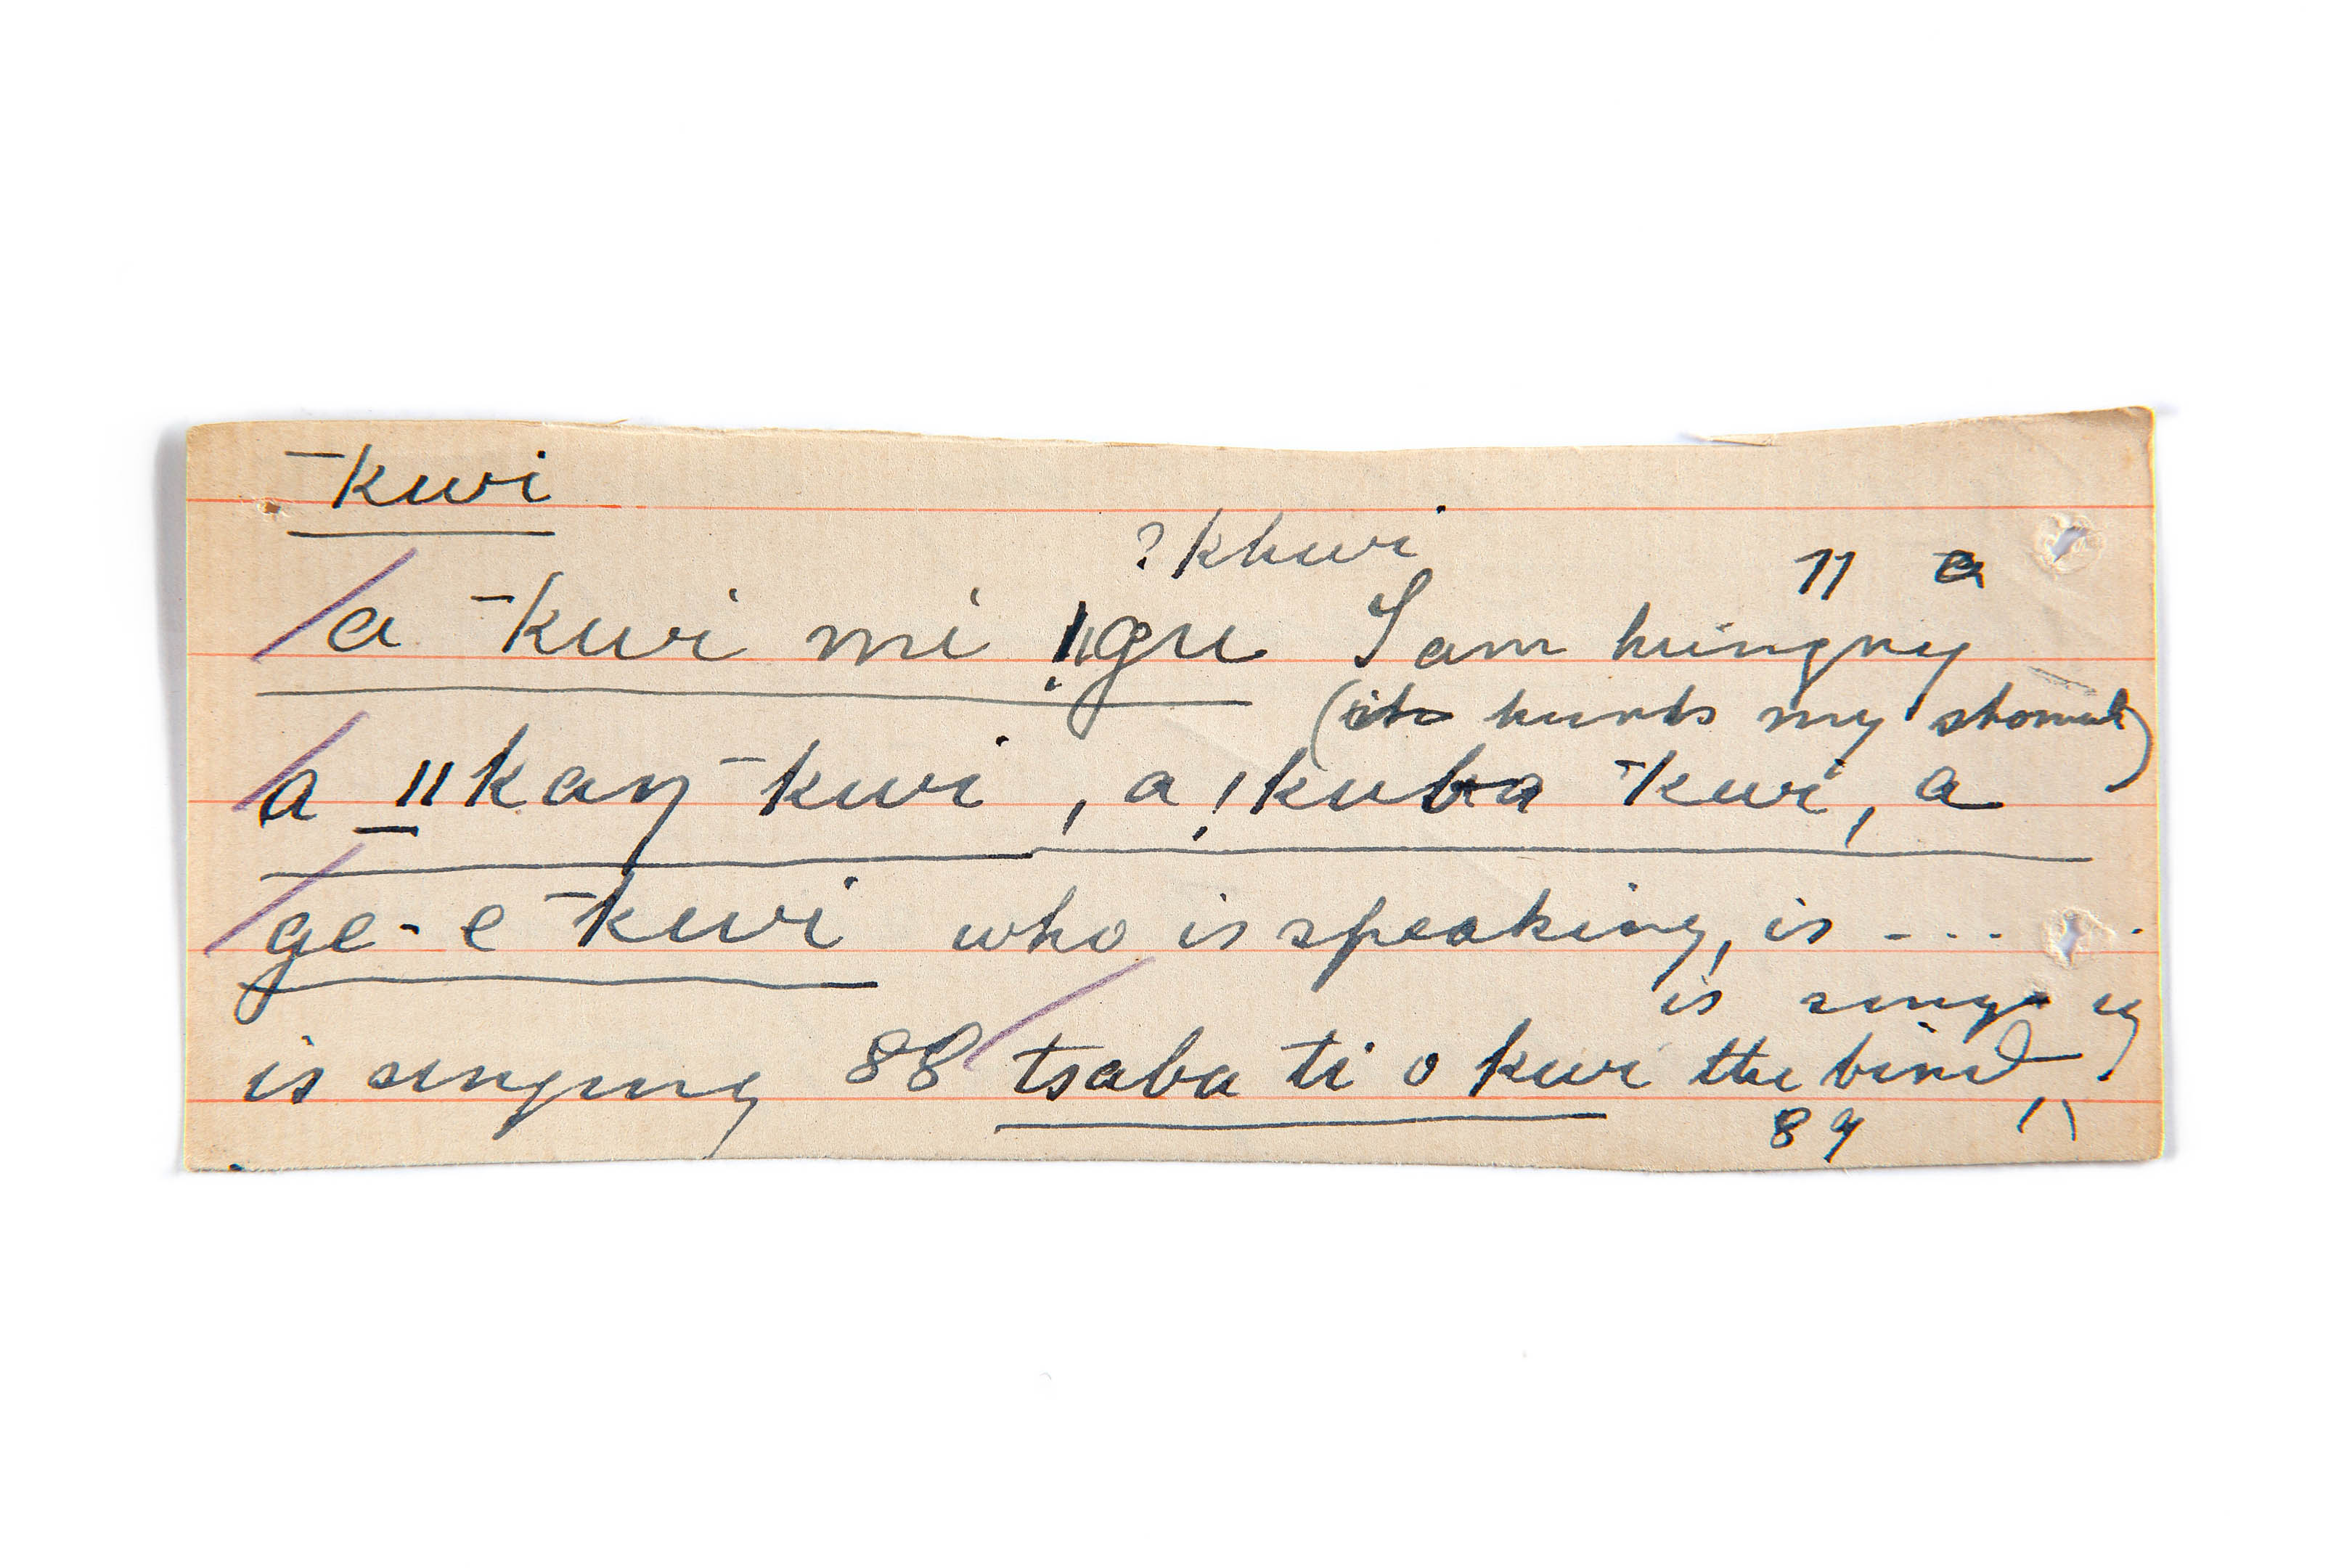 ¯kwi
? khwi
a ¯kwi mi ǁgu I am hungry 11 a
(it hurts my stomach)
a ǁkaŋ ¯kwi, a !kuba ¯kwi, a
ge-e ¯kwi who is speaking, is - . . . .
is singing 88 tsaba ti o kwi the bird
is singing
89